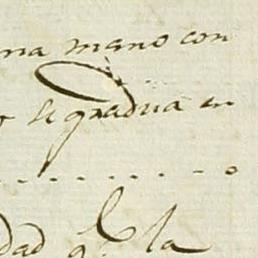 na mano con
se gradua en
dad q.e la